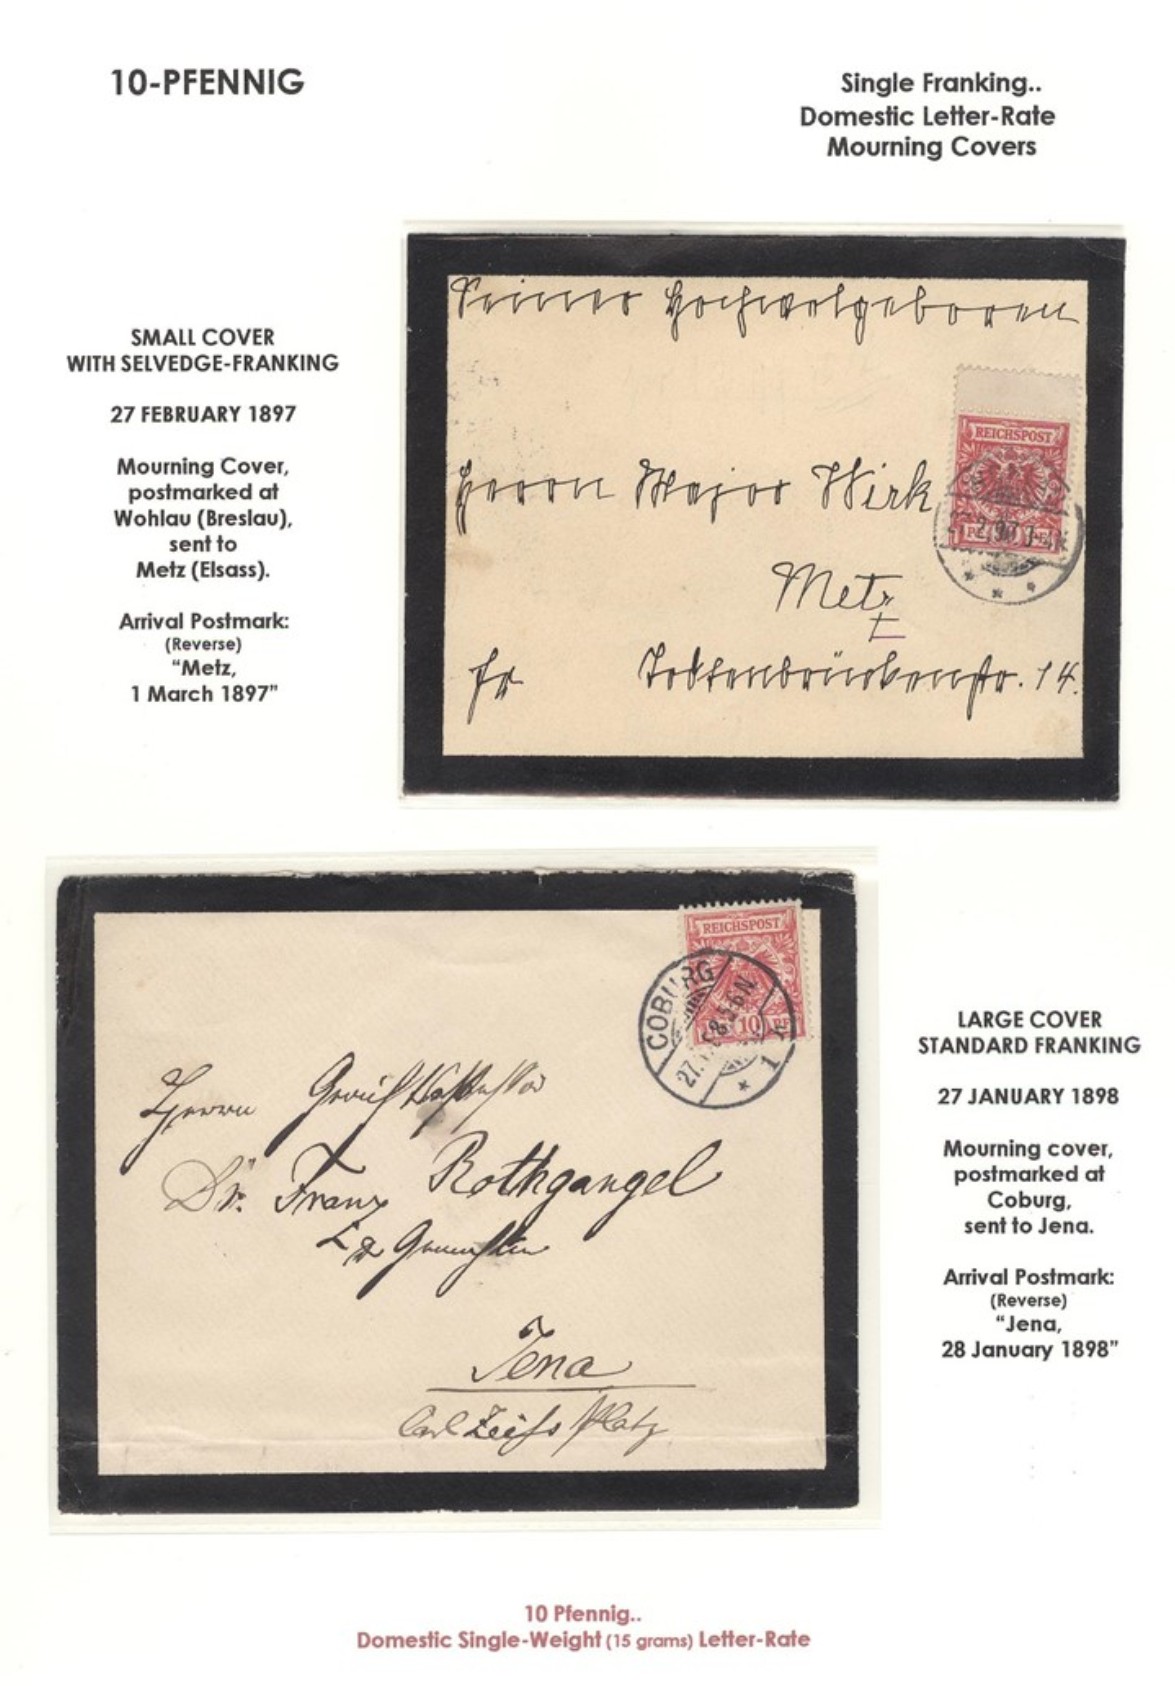 10-PFENNIG
Single Franking..
Domestic Letter-Rate
Mourning Covers
SMALL COVER
WITH SELVEDGE-FRANKING
27 FEBRUARY 1897
Mourning Cover,
postmarked at
Wohlau (Breslau),
sent to
Metz (Elsass).
Arrival Postmark:
(Reverse)
“Metz,
1 March 1897”
Seiner Hochwolgeboren
REICHSPOST
Herrn Major Wirk
2.97.
Metz
fr Todtenbrückenstr. 14.
REICHSPOST
COBURG
10 PF
27.
5-6N
* 1
Herrn
Dr. Franz Rothgangel
Jena
Carl Zeifs Platz
LARGE COVER
STANDARD FRANKING
27 JANUARY 1898
Mourning cover,
postmarked at
Coburg,
sent to Jena.
Arrival Postmark:
(Reverse)
“Jena,
28 January 1898”
10 Pfennig..
Domestic Single-Weight (15 grams) Letter-Rate